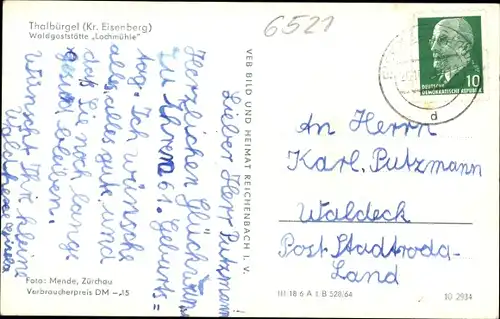 Thalbürgel (Kr. Eisenberg)
Waldgaststätte „Lochmühle"
6521
Lieber Herr Putzmann!
Herzlichen Glückwun
zu Ihrem 61. Geburts=
tag. Ich wünsche
alles alles gute und
daß Sie noch lange
gesund bleiben.
Wünscht Ihr kleine
Gisela
Foto: Mende, Zürchau
Verbraucherpreis DM –,15
VEB BILD UND HEIMAT REICHENBACH I. V.
10
DEUTSCHE
DEMOKRATISCHE REPUBLIK
d
An Herrn
Karl. Putzmann
Waldeck
Post Stadtroda-
Land
III 18 6 A 1 B 528/64
10 2934